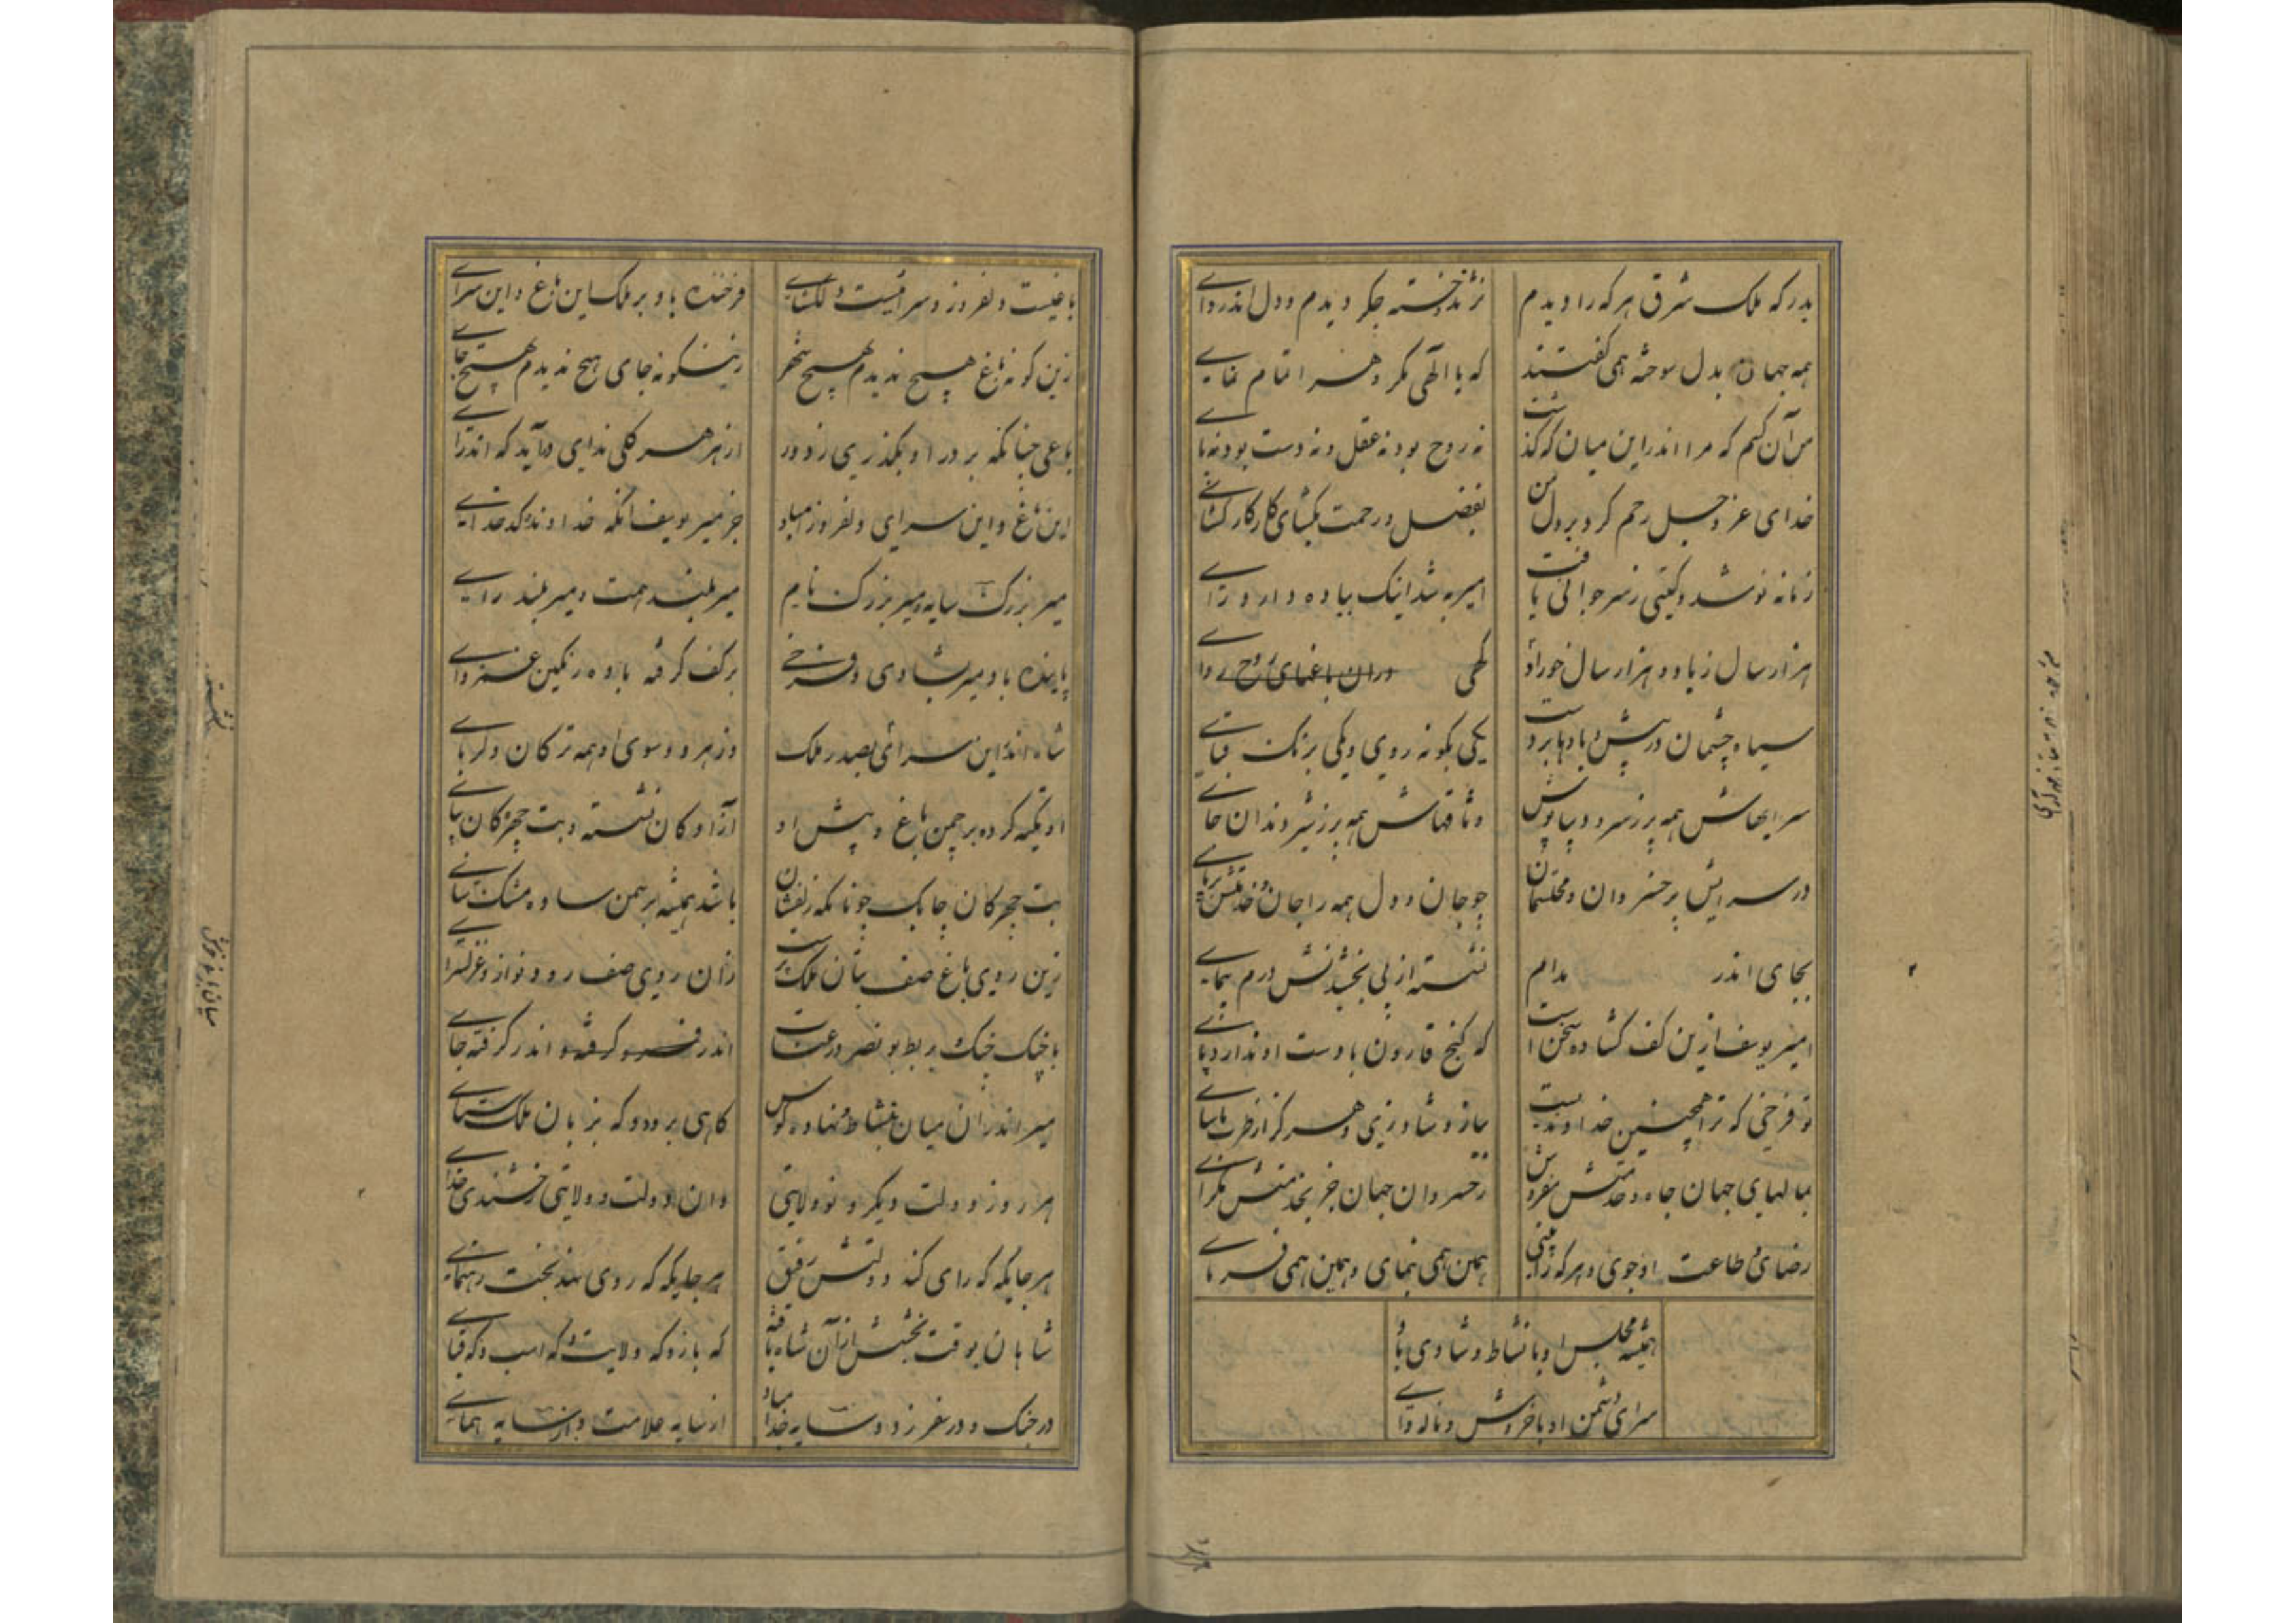 بدرکه ملک شرق هر که را دیدم
نژند و خسته جگر دیدم و دل اندروای
همه جهان بدل سوخته همی گفتند
که یا الهی مگر و هنر ا تمام نمای
من آن کسم که مرا اندر این میان که گذشت
نه روح بود نه عقل و نه دست بود نه پای
خدای عز و جل رحم کرد بر دل من
بفضل و رحمت بگشای کار کارگشای
زمانه نو شد و گیتی ز سر جوانی یافت
امیر به شد اینک بیاده دارد رای
هزار سال زیاد و هزار سال خوراد
گهی دران باغهای روح ردای
سیاه چشمان در پیش و بادها بر دست
یکی بگونه روی و یکی برنگ قبای
سرایهاش همه پر ز سرو دیبا پوش
وثاقهاش همه پر ز شیر دندان خای
در سرایش پر خسروان و محتشمان
چو جان و دل همه را جان و خدمتش بر پای
بجای اندر مدام
نشسته از پی بخشیدنش درم پیمای
امیر یوسف ازین کف گشاده سخن است
که گنج قارون با دست او ندارد پای
تو فرخی که ترا همچنین خداوندیست
بناز و شاد زی و هر گز از طرب ماسای
بمالهای جهان جاه و خدمتش مفروش
ز خسروان جهان جز بخدمتش مگرای
رضای و طاعت او جوی و هر که را بینی
همین همی نمای و همین همی فرمای
همیشه مجلس او با نشاط و شادی باد
سرای دشمن او با خروش و ناله و وای
باغیست دلفروز و سراییست دلگشای
فرخنده باد بر ملک این باغ و این سرای
زین گونه باغ هیچ ندیدم بهیچ شهر
زینگونه جای هیچ ندیدم بهیچ جای
باغی چنانکه بر در او بگذری ز دور
از هر سر گلی ندای درآید که اندرای
این باغ و این سرای دلفروز را مباد
جز میر یوسف آنکه خداوند کدخدای
میر بزرگ سایه و میر بزرگ نام
میر بلند همت و میر بلند رای
پاینده باد میر بشادی و فرخی
بر کف گرفته باده رنگین غمزدای
شاه اندر این سرای بصدر ملک
وز هر دو سوی او همه ترکان دلربای
او تکیه کرده بر چمن باغ و پیش او
آزادگان نشسته و بت چهرگان بپای
بت چهرگان چابک چونانکه زلفشان
باشد همیشه بر سمن ساده مشک سای
زین روی باغ صف بتان ملک پرست
زان روی صف رود نواز و غزلسرای
با چنگ چنگ و بربط بو نصر در عتاب
اندر فسرو گرفته و اندر گرفته جای
میر اندر آن میان بنشاط نهاده گوش
گاهی برود و که بزبان ملک ستای
هر روز دولت دیگر و نو ولایتی
وان دولت و ولایتی خشندی خدای
هر جایگه که رای کند دولتش رفیق
هر جایگه که روی نهد بخت رهنمای
شاهان بوقت بخشش از آن شاه یافته
که باز و که ولایت و که اسب و که قبای
در جنگ و در سفر ز دو سایه جدا مباد
از سایه علامت و از سایه همای